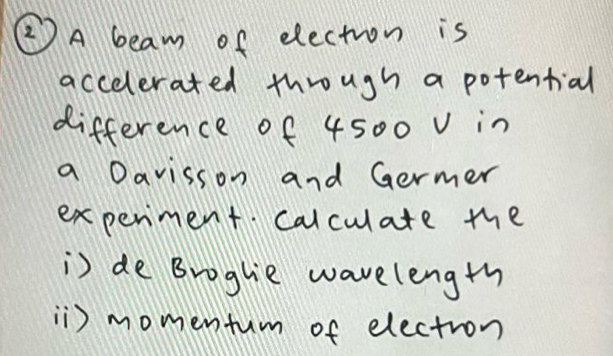 (2) A beam of electron is
accelerated through a potential
difference of 4500 V in
a Davisson and Germer
experiment. Calculate the
i) de Broglie wavelength
ii) momentum of electron